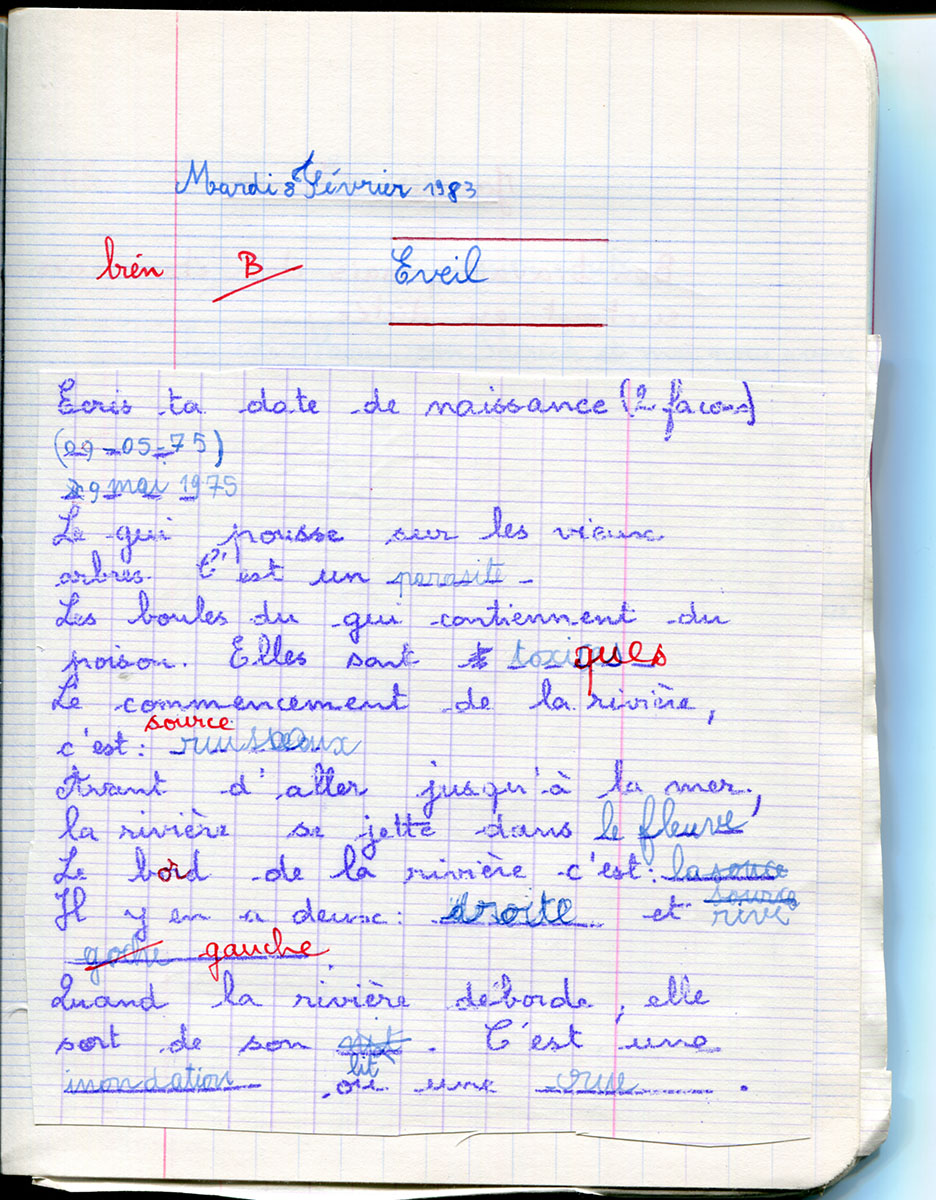 Mardi 8 Février 1983
bien B Eveil
Ecris ta date de naissance (2 facons)
(29-05-75)
29 mai 1975
Le gui pousse sur les vieux
arbres. C'est un parasite.
Les boules du gui contiennent du
poison. Elles sont toxiques
Le commencement de la rivière,
source
c'est: ruisseaux
Avant d'aller jusqu'à la mer,
la rivière se jette dans le fleuve
Le bord de la rivière c'est: la source
source
Il y en a deux: droite et rive
goche gauche
Quand la rivière déborde, elle
sort de son . C'est une
lit
inondation ou une crue .